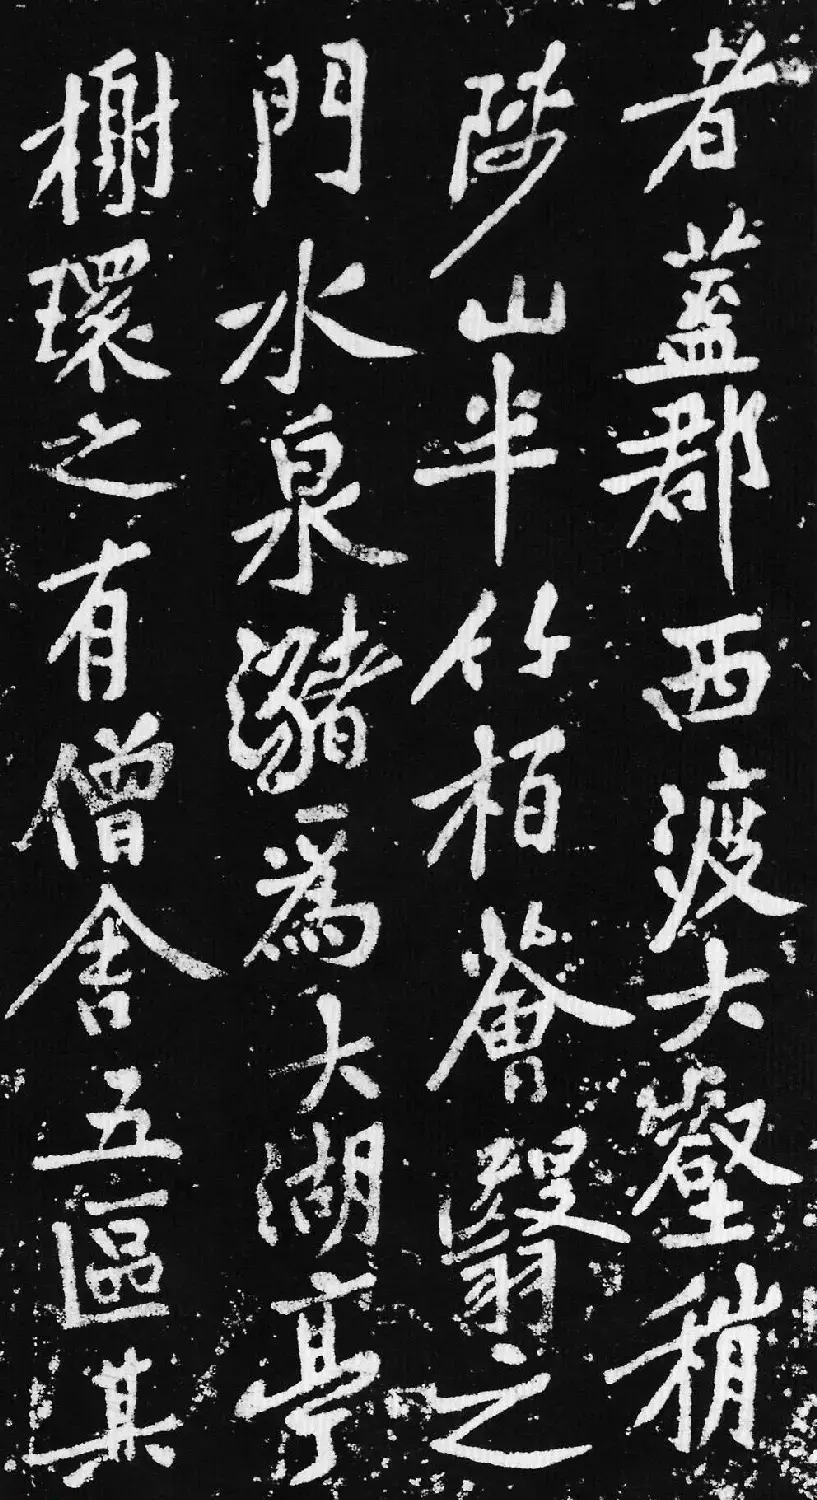 者蓋郡西渡大壑稍
陟山半竹柏薈翳之
門水泉瀦為大湖亭
榭環之有僧舍五區其